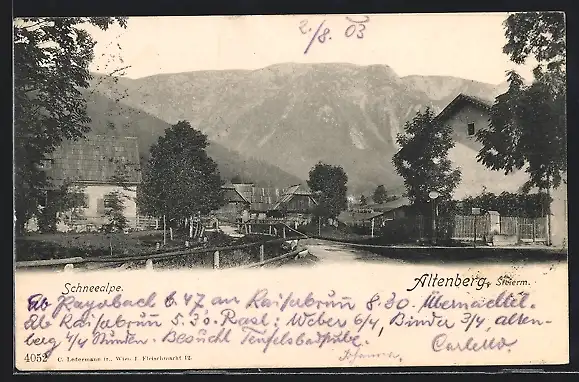 2./8. 03
Schneealpe. Altenberg, Steierm.
Ab Rayobach 6.47 an Kaiserbrunn 8.30. Übernachtet.
Ab Kaiserbrunn 5.30. Rast: Weber 6/4, Binder 3/4, alten-
berg 4/4 Stunden. Besucht Teufelsbadstube.
Johanna Carletto
4052 C. Ledermann jr., Wien, I. Fleischmarkt 12.